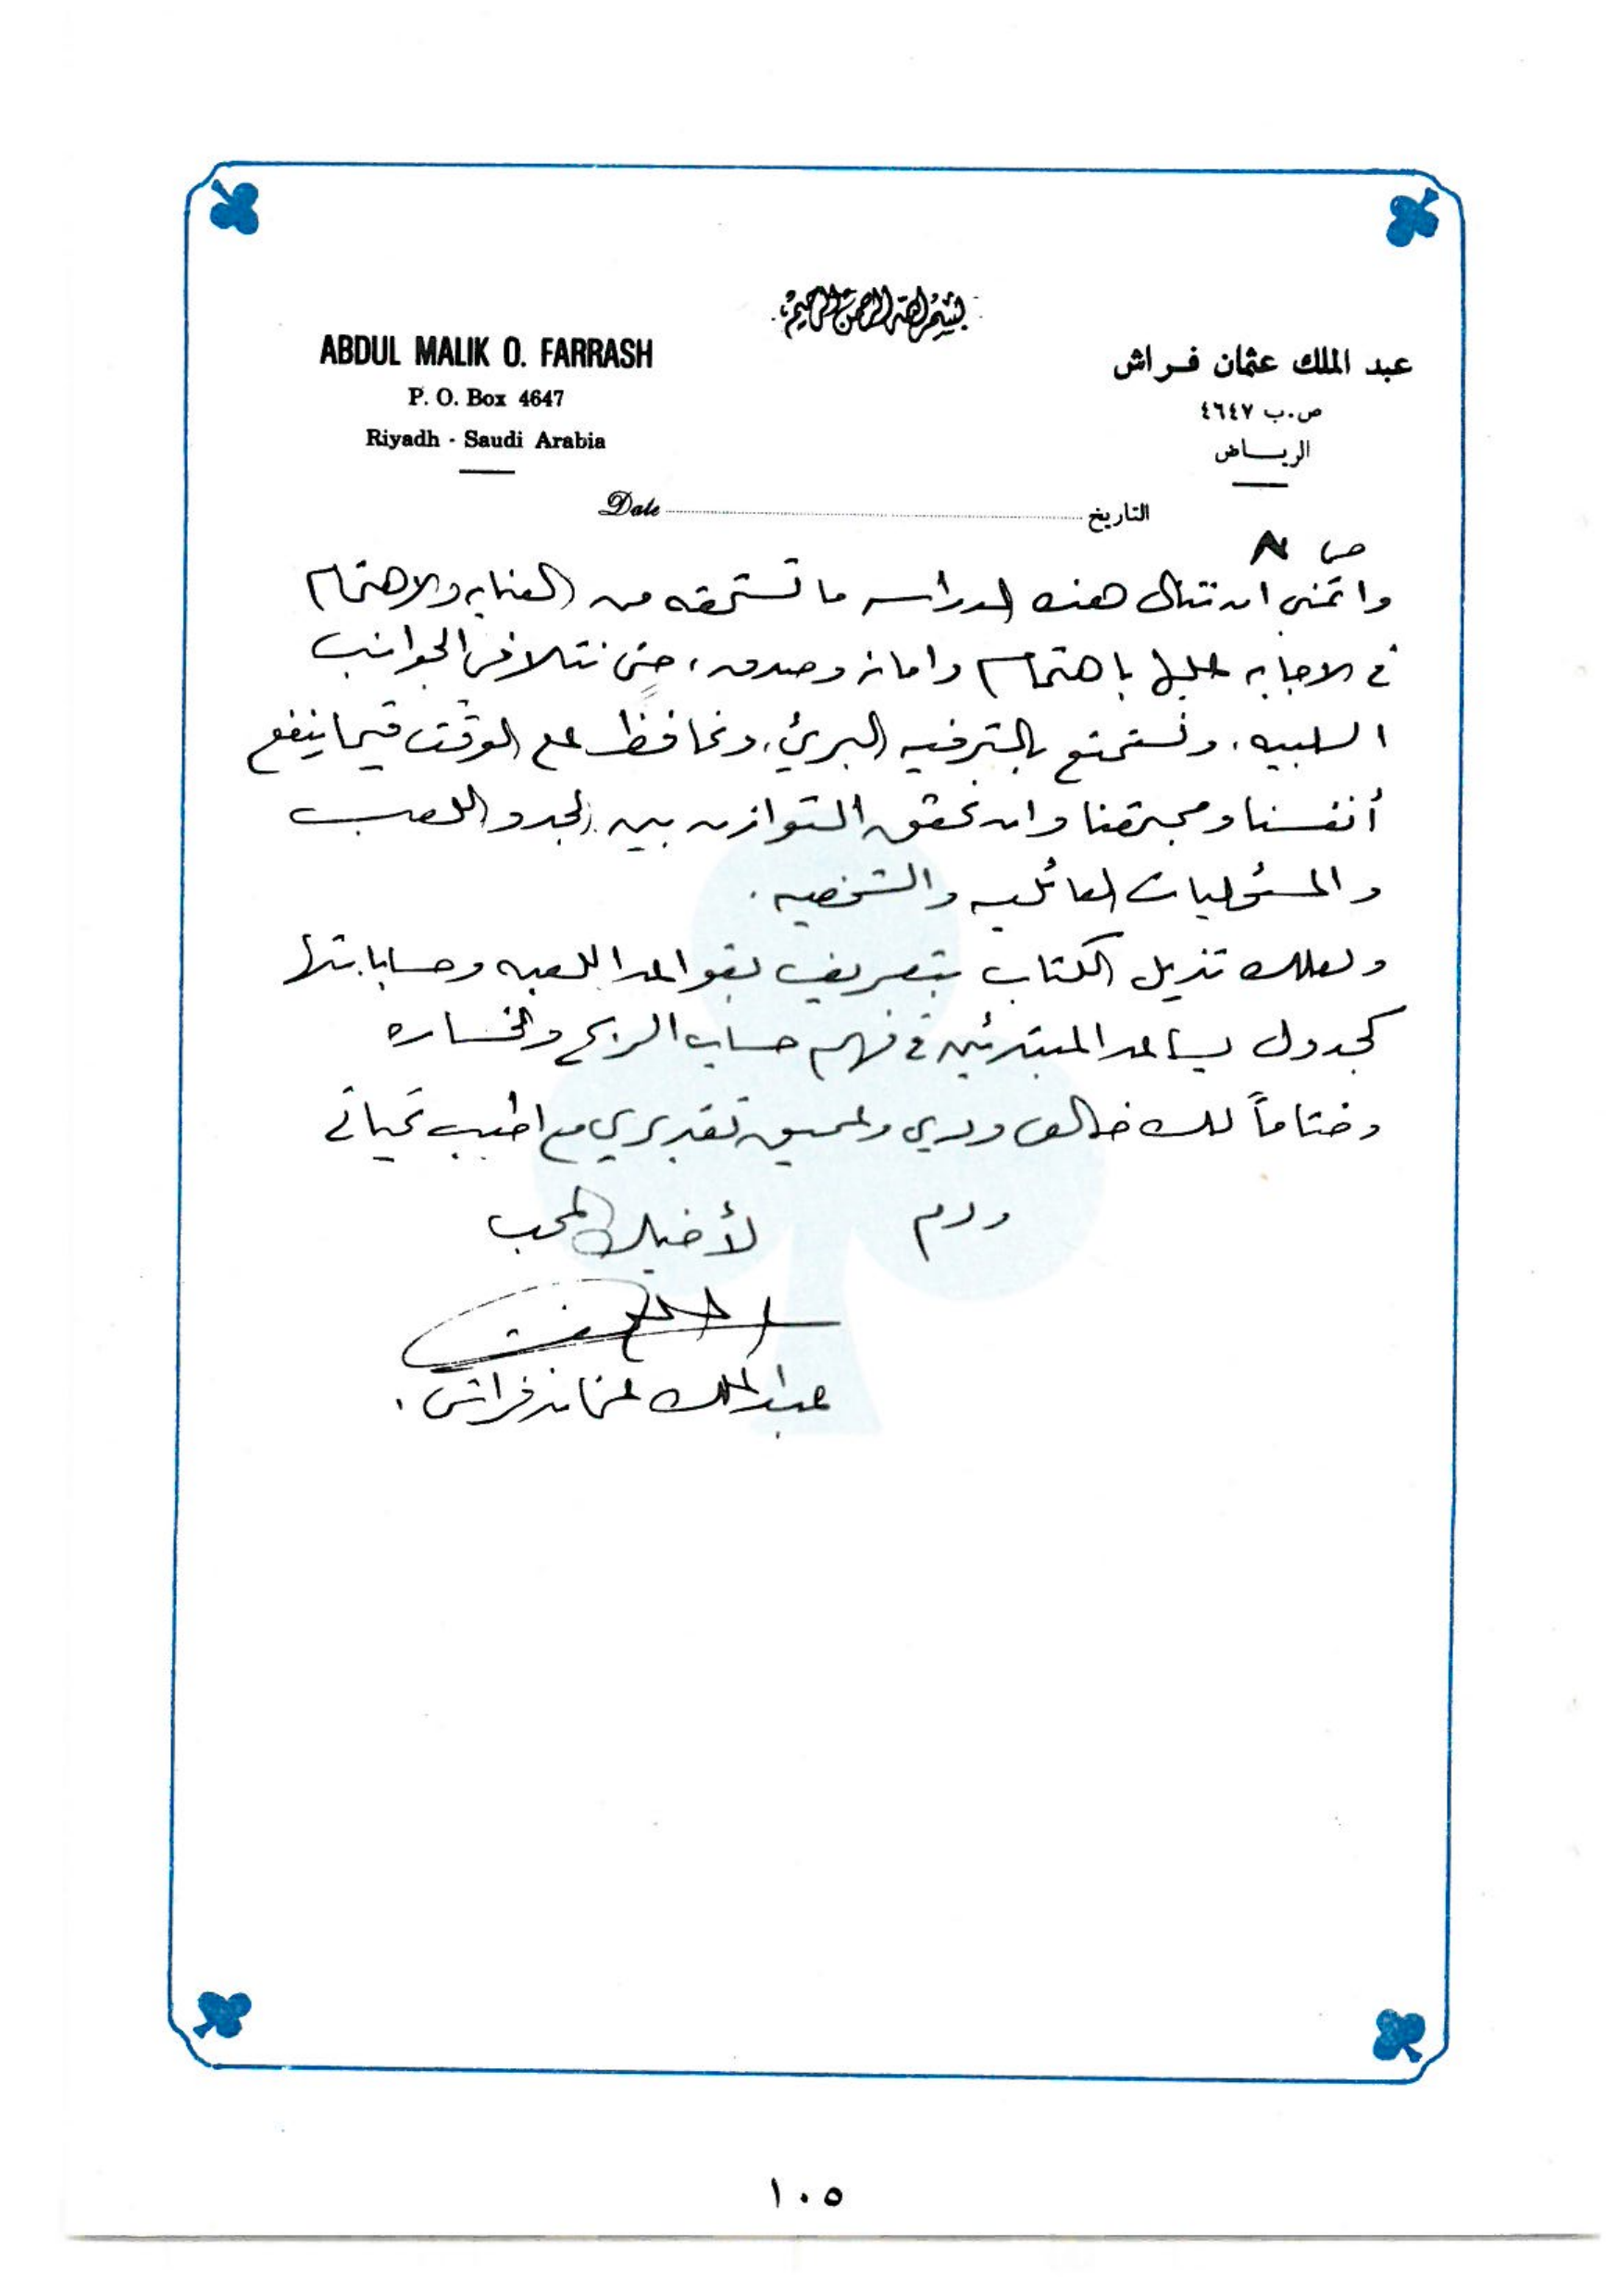 بسم الله الرحمن الرحيم
ABDUL MALIK O. FARRASH
P. O. Box 4647
Riyadh - Saudi Arabia
عبد الملك عثمان فراش
ص.ب ٤٦٤٧
الرياض
Date التاريخ
ص ٨
واتمنى ان تنال هذه الدراسه ما تستحقه من العنايه والاهتمام
في الاجابه عليها باهتمام وامانه وصدق، حتى نتلافى الجوانب
السلبيه، ونستمتع بالترفيه البريئ، ونحافظ على الوقت فيما ينفع
أنفسنا ومجتمعنا وان نحقق التوازن بين الجد واللعب
والمسئوليات العائليه والشخصيه.
ولعلك تذيل الكتاب بتعريف بقواعد اللعبه وحساباتها
كجدول يساعد المبتدئين في فهم حساب الربح والخساره
وختاماً لك خالص ودي وعميق تقديري مع اطيب تحياتي
ودم لأخيك المحب
عبد الملك عثمان فراش.
١٠٥